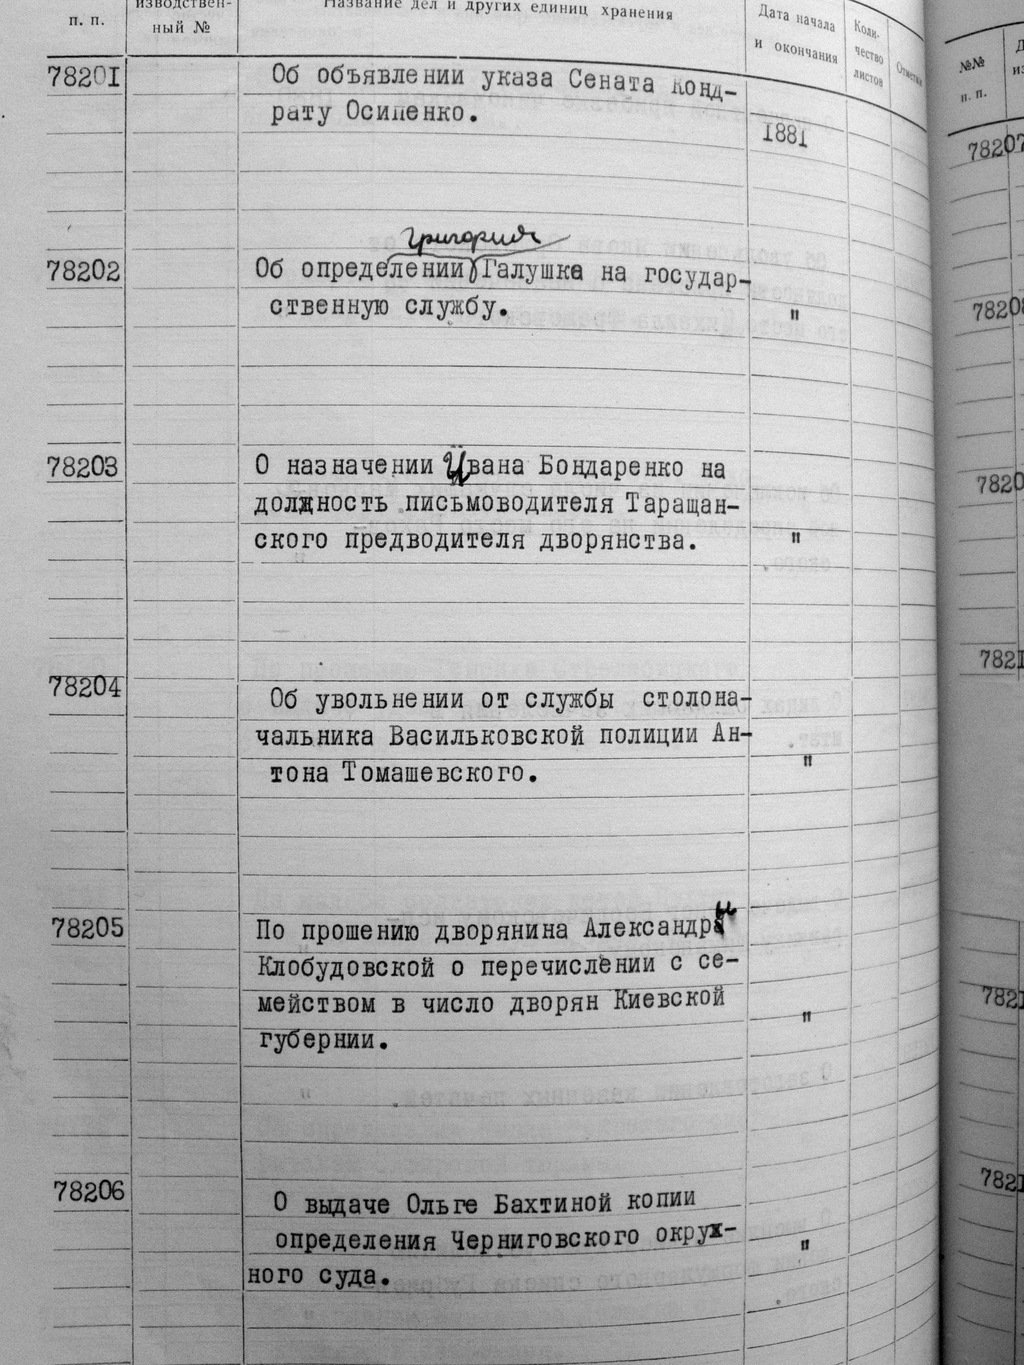 п. п.
изводствен-
ный №
Название дел и других единиц хранения
Дата начала
и окончания
Коли-
чество
листов
Отметки
№№
п. п.
78201
Об объявлении указа Сената Конд-
рату Осипенко.
1881
Григория
78202
Об определении Галушка на государ-
ственную службу.
"
78203
О назначении Ивана Бондаренко на
должность письмоводителя Таращан-
ского предводителя дворянства.
"
78204
Об увольнении от службы столона-
чальника Васильковской полиции Ан-
тона Томашевского.
"
78205
По прошению дворянина Александры
Клобудовской о перечислении с се-
мейством в число дворян Киевской
губернии.
"
78206
О выдаче Ольге Бахтиной копии
определения Черниговского окруж-
ного суда.
"
78207